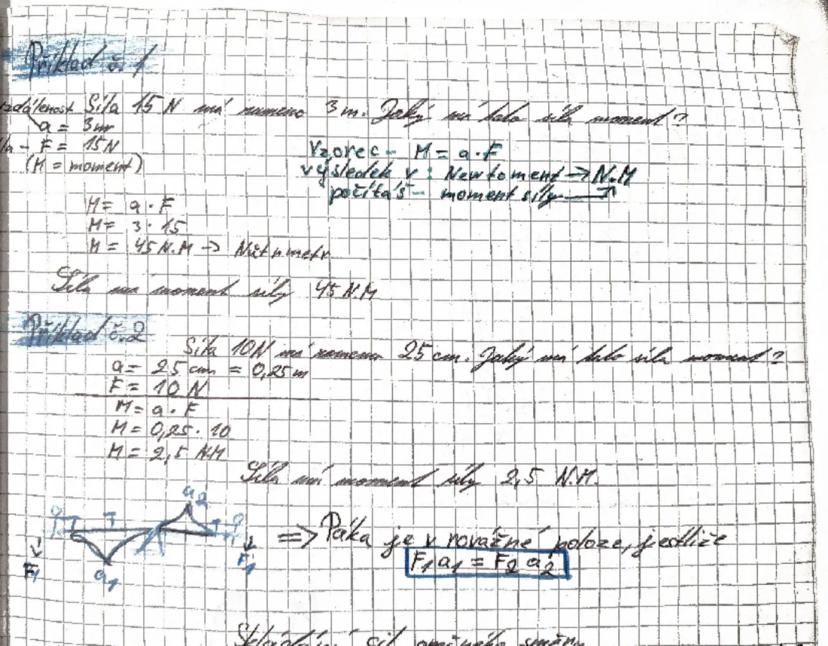 Příklad č. 1
vzdálenost Síla 15 N má rameno 3 m. Jaký má tato síla moment?
a = 3m
F = 15N
(M = moment)
Vzorec - M = a · F
výsledek v: Newtoment → N.M
počítáš - moment síly
M = a · F
M = 3 · 15
M = 45 N.M →
Síla má moment síly 45 N.M
Příklad č. 2
Síla 10N má rameno 25 cm. Jaký má tato síla moment?
a = 25 cm = 0,25 m
F = 10 N
M = a · F
M = 0,25 · 10
M = 2,5 NM
Síla má moment síly 2,5 N.M.
a2
F1 a1 F1
=> Páka je v rovážné poloze, jestliže
F1 a1 = F2 a2
Skládání sil